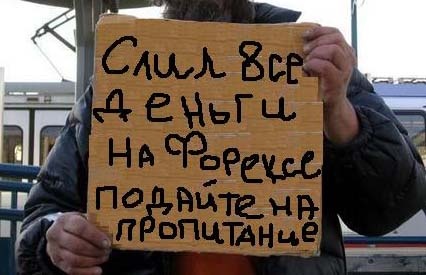 Слил все
деньги
на Форексе
подайте на
пропитание